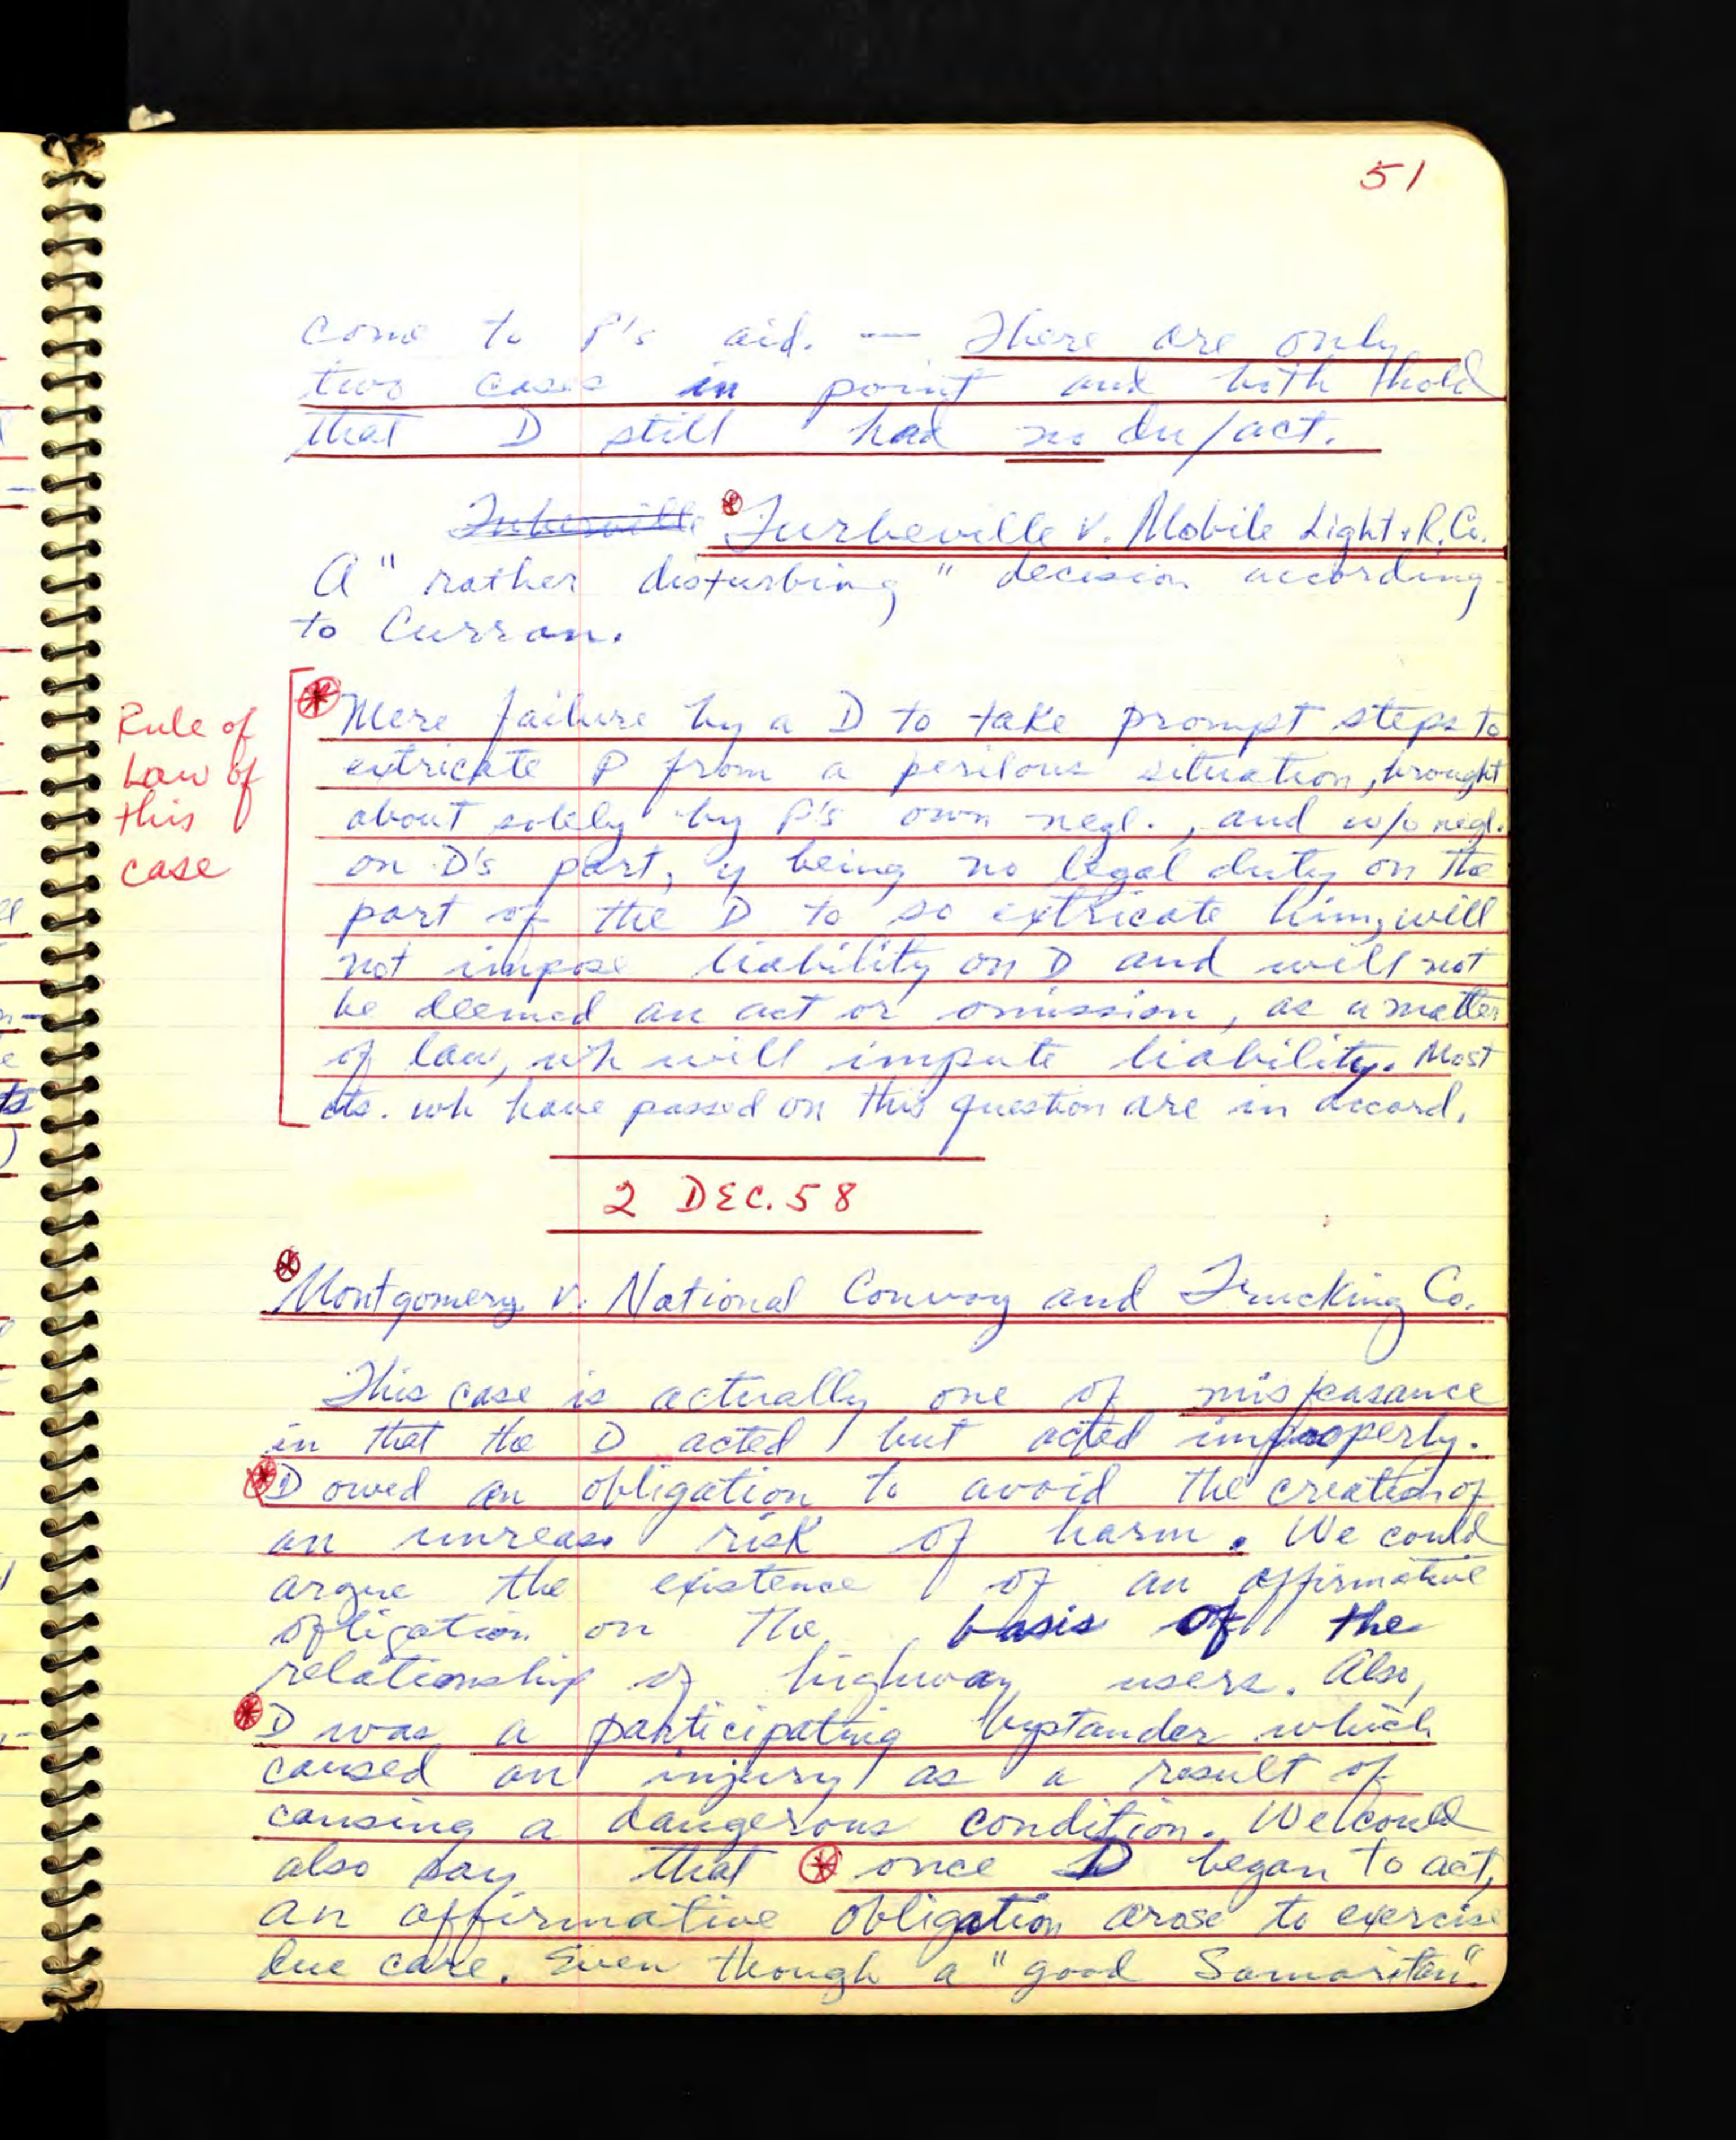 51
come to P's aid. — There are only
two cases in point and both hold
that D still had no du/act.
Turbeville v. Mobile Light & R. Co.
A "rather disturbing" decision according
to Curran.
Rule of
Law of
this
case
Mere failure by a D to take prompt steps to
extricate P from a perilous situation, brought
about solely by P's own negl., and w/o negl.
on D's part, y being no legal duty on the
part of the D to so extricate him, will
not impose liability on D and will not
be deemed an act or omission, as a matter
of law, wh will impute liability. Most
cts. wh have passed on this question are in accord.
2 DEC. 58
Montgomery v. National Convoy and Trucking Co.
This case is actually one of misfeasance
in that the D acted but acted improperly.
D owed an obligation to avoid the creation of
an unreas. risk of harm. We could
argue the existence of an affirmative
obligation on the basis of the
relationship of highway users. Also,
D was a participating bystander which
caused an injury as a result of
causing a dangerous condition. We could
also say that once D began to act,
an affirmative obligation arose to exercise
due care. Even though a "good Samaritan"